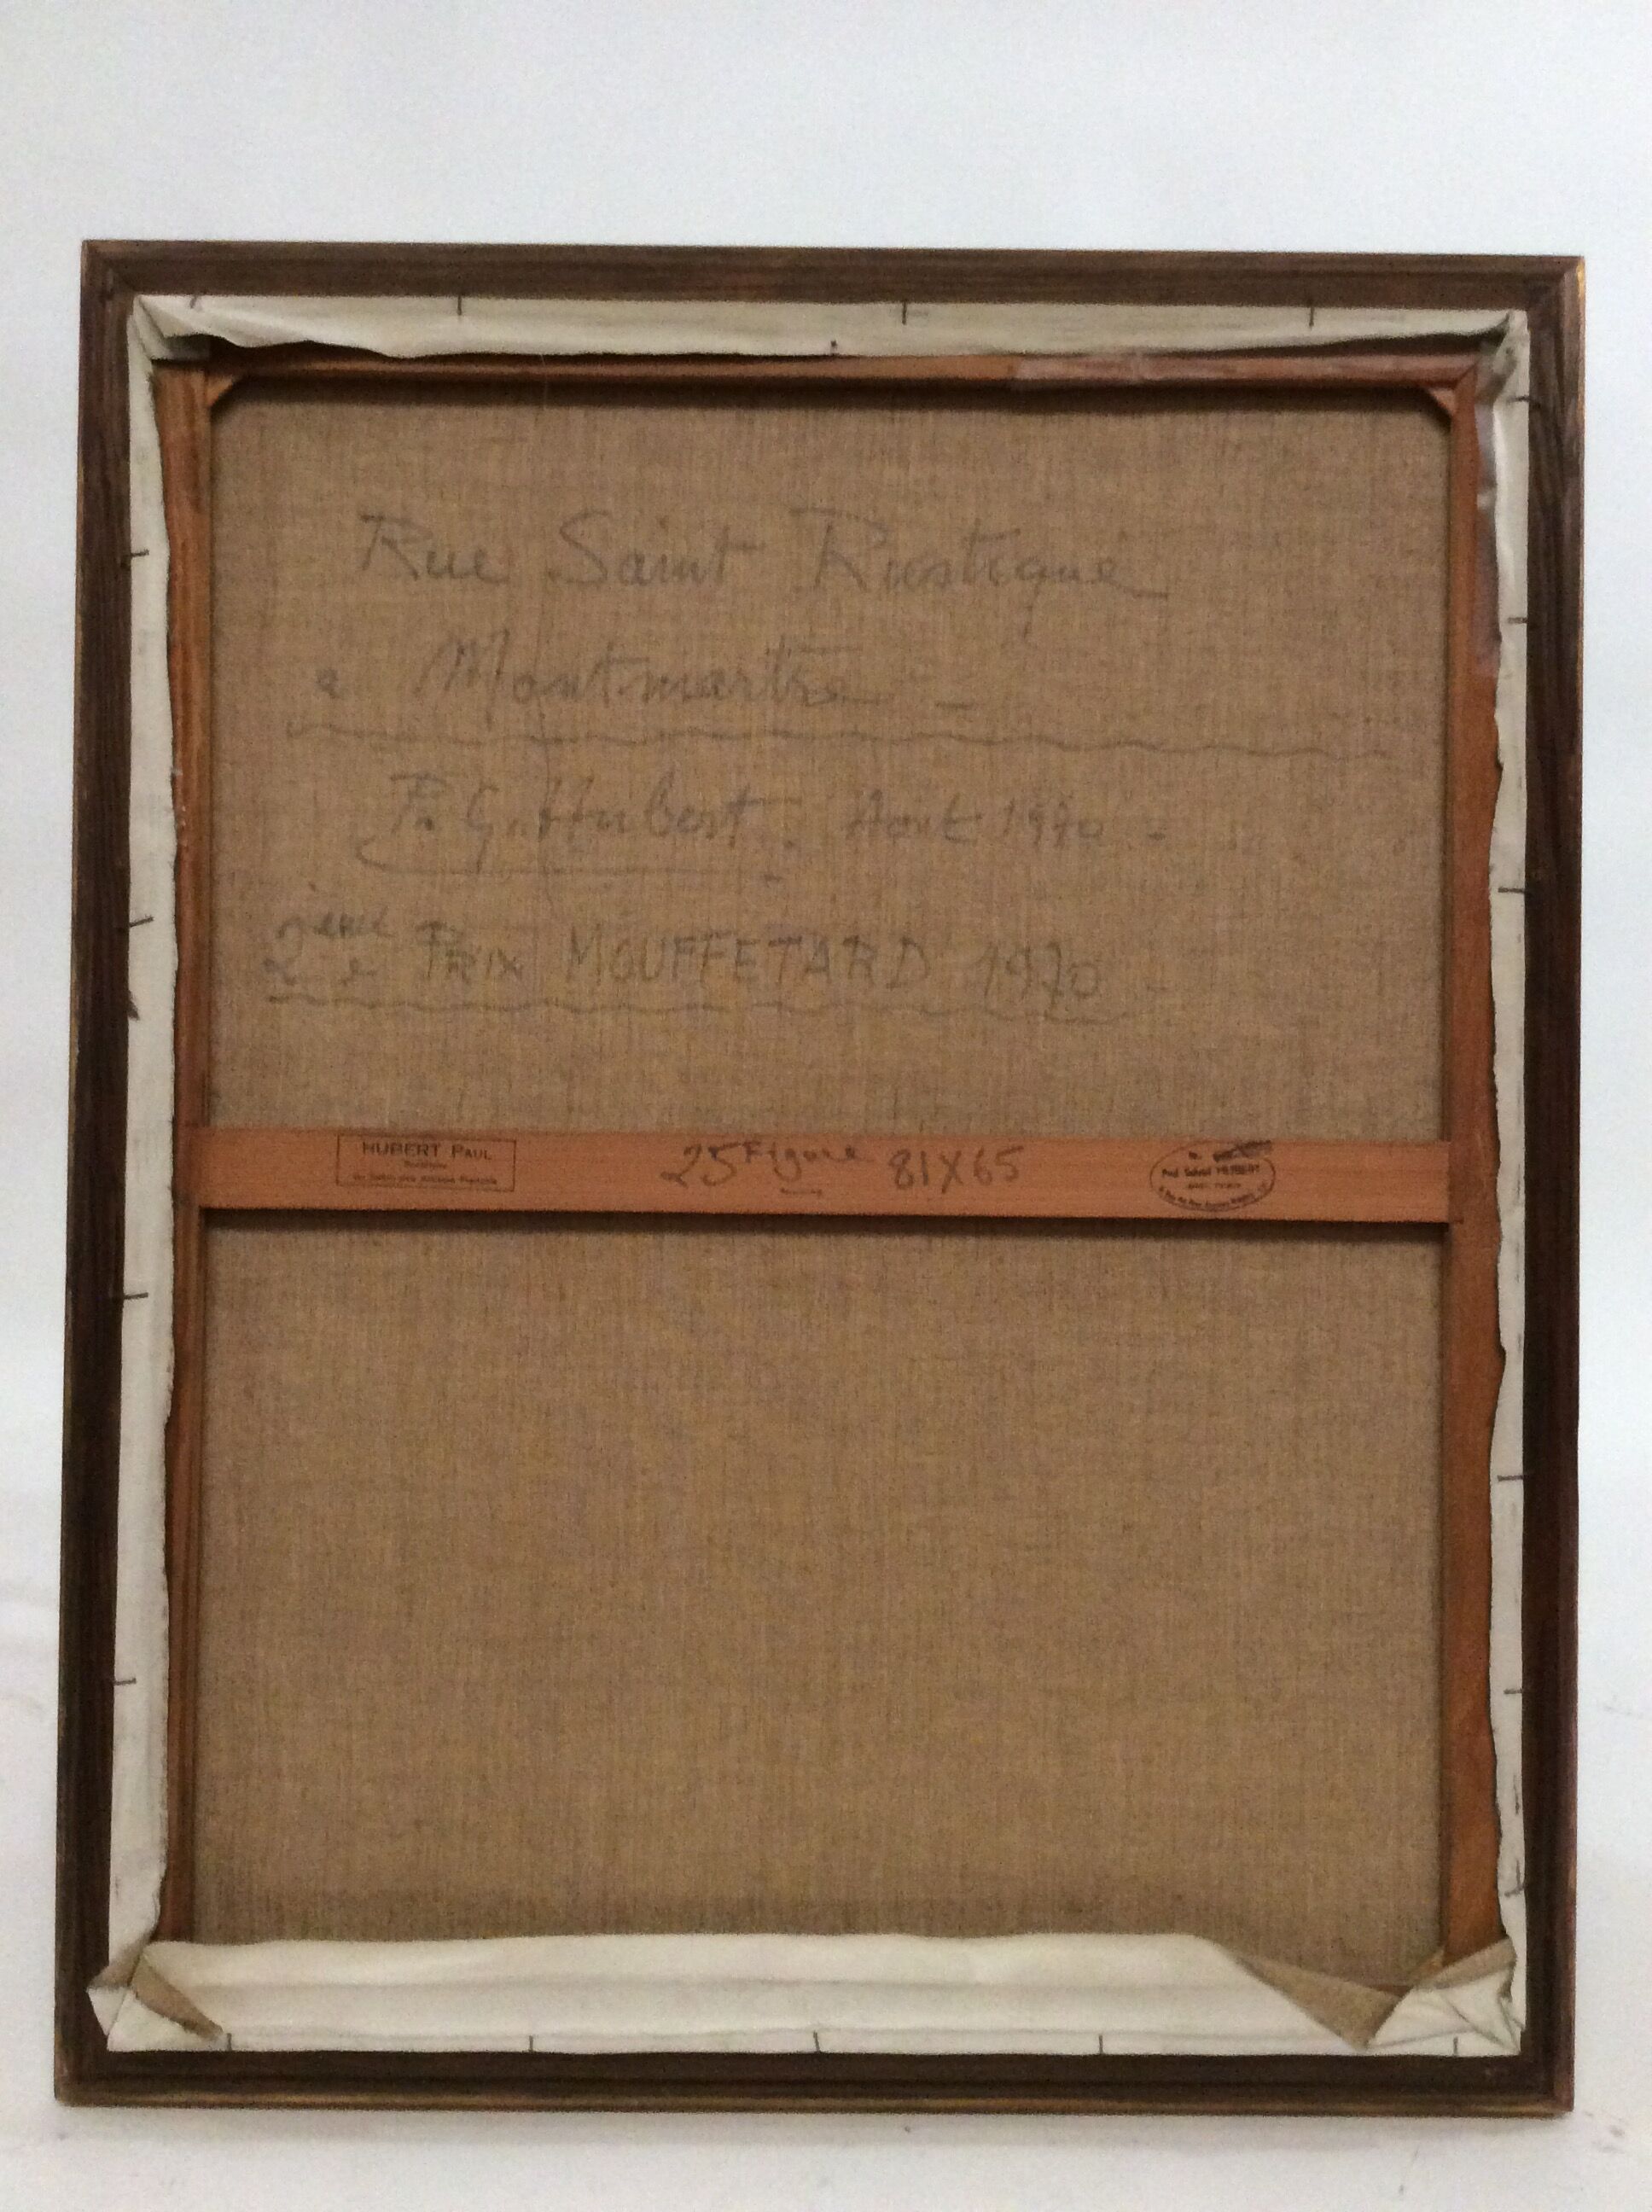 Rue Saint Rustique
a Montmartre -
P. G. Hubert. Aout 1970 -
2ème PRIX MOUFFETARD 1970 -
HUBERT PAUL
25 Figure 81X65
Paul Gabriel HUBERT